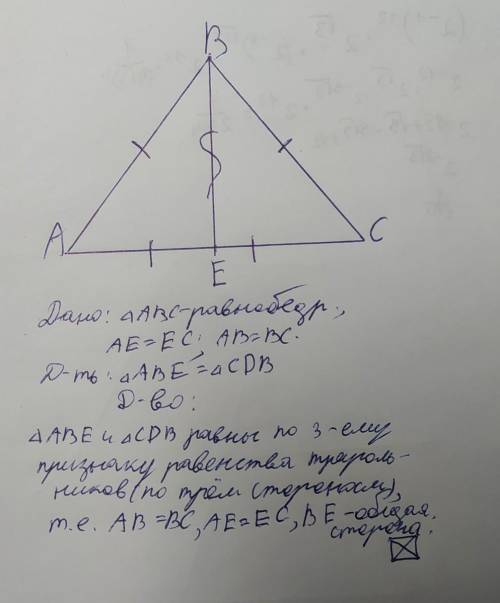 B
A
C
E
Дано: △ABC-равнобедр.,
AE=EC; AB=BC.
Д-ть: △ABE=△CDB
Д-во:
△ABE и △CDB равны по 3-ему
признаку равенства треуголь-
ников (по трём сторонам),
т.е. AB=BC, AE=EC, BE-общая
сторона.